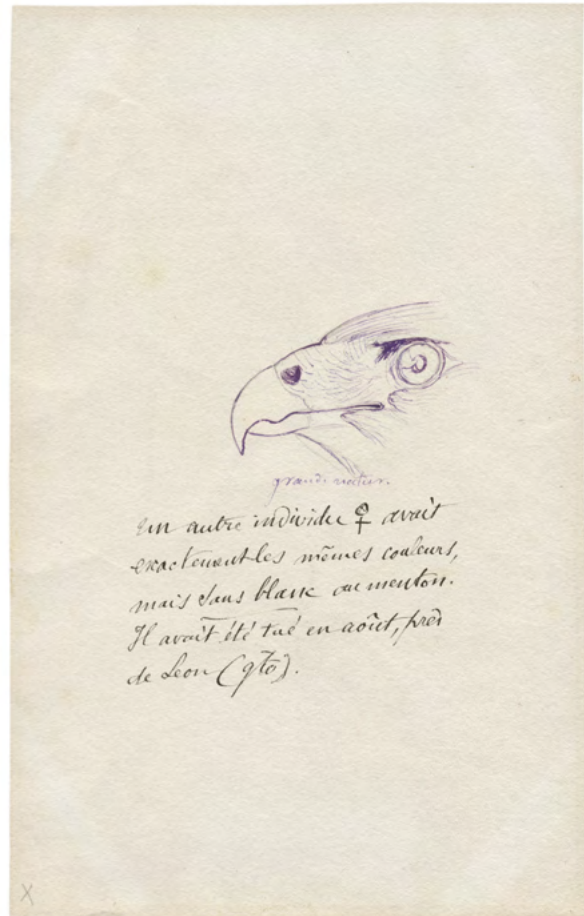 grand. natur.
un autre individu ♀ avait
exactement les mêmes couleurs,
mais sans blanc au menton.
Il avait été tué en août, près
de Leon (gto).
X